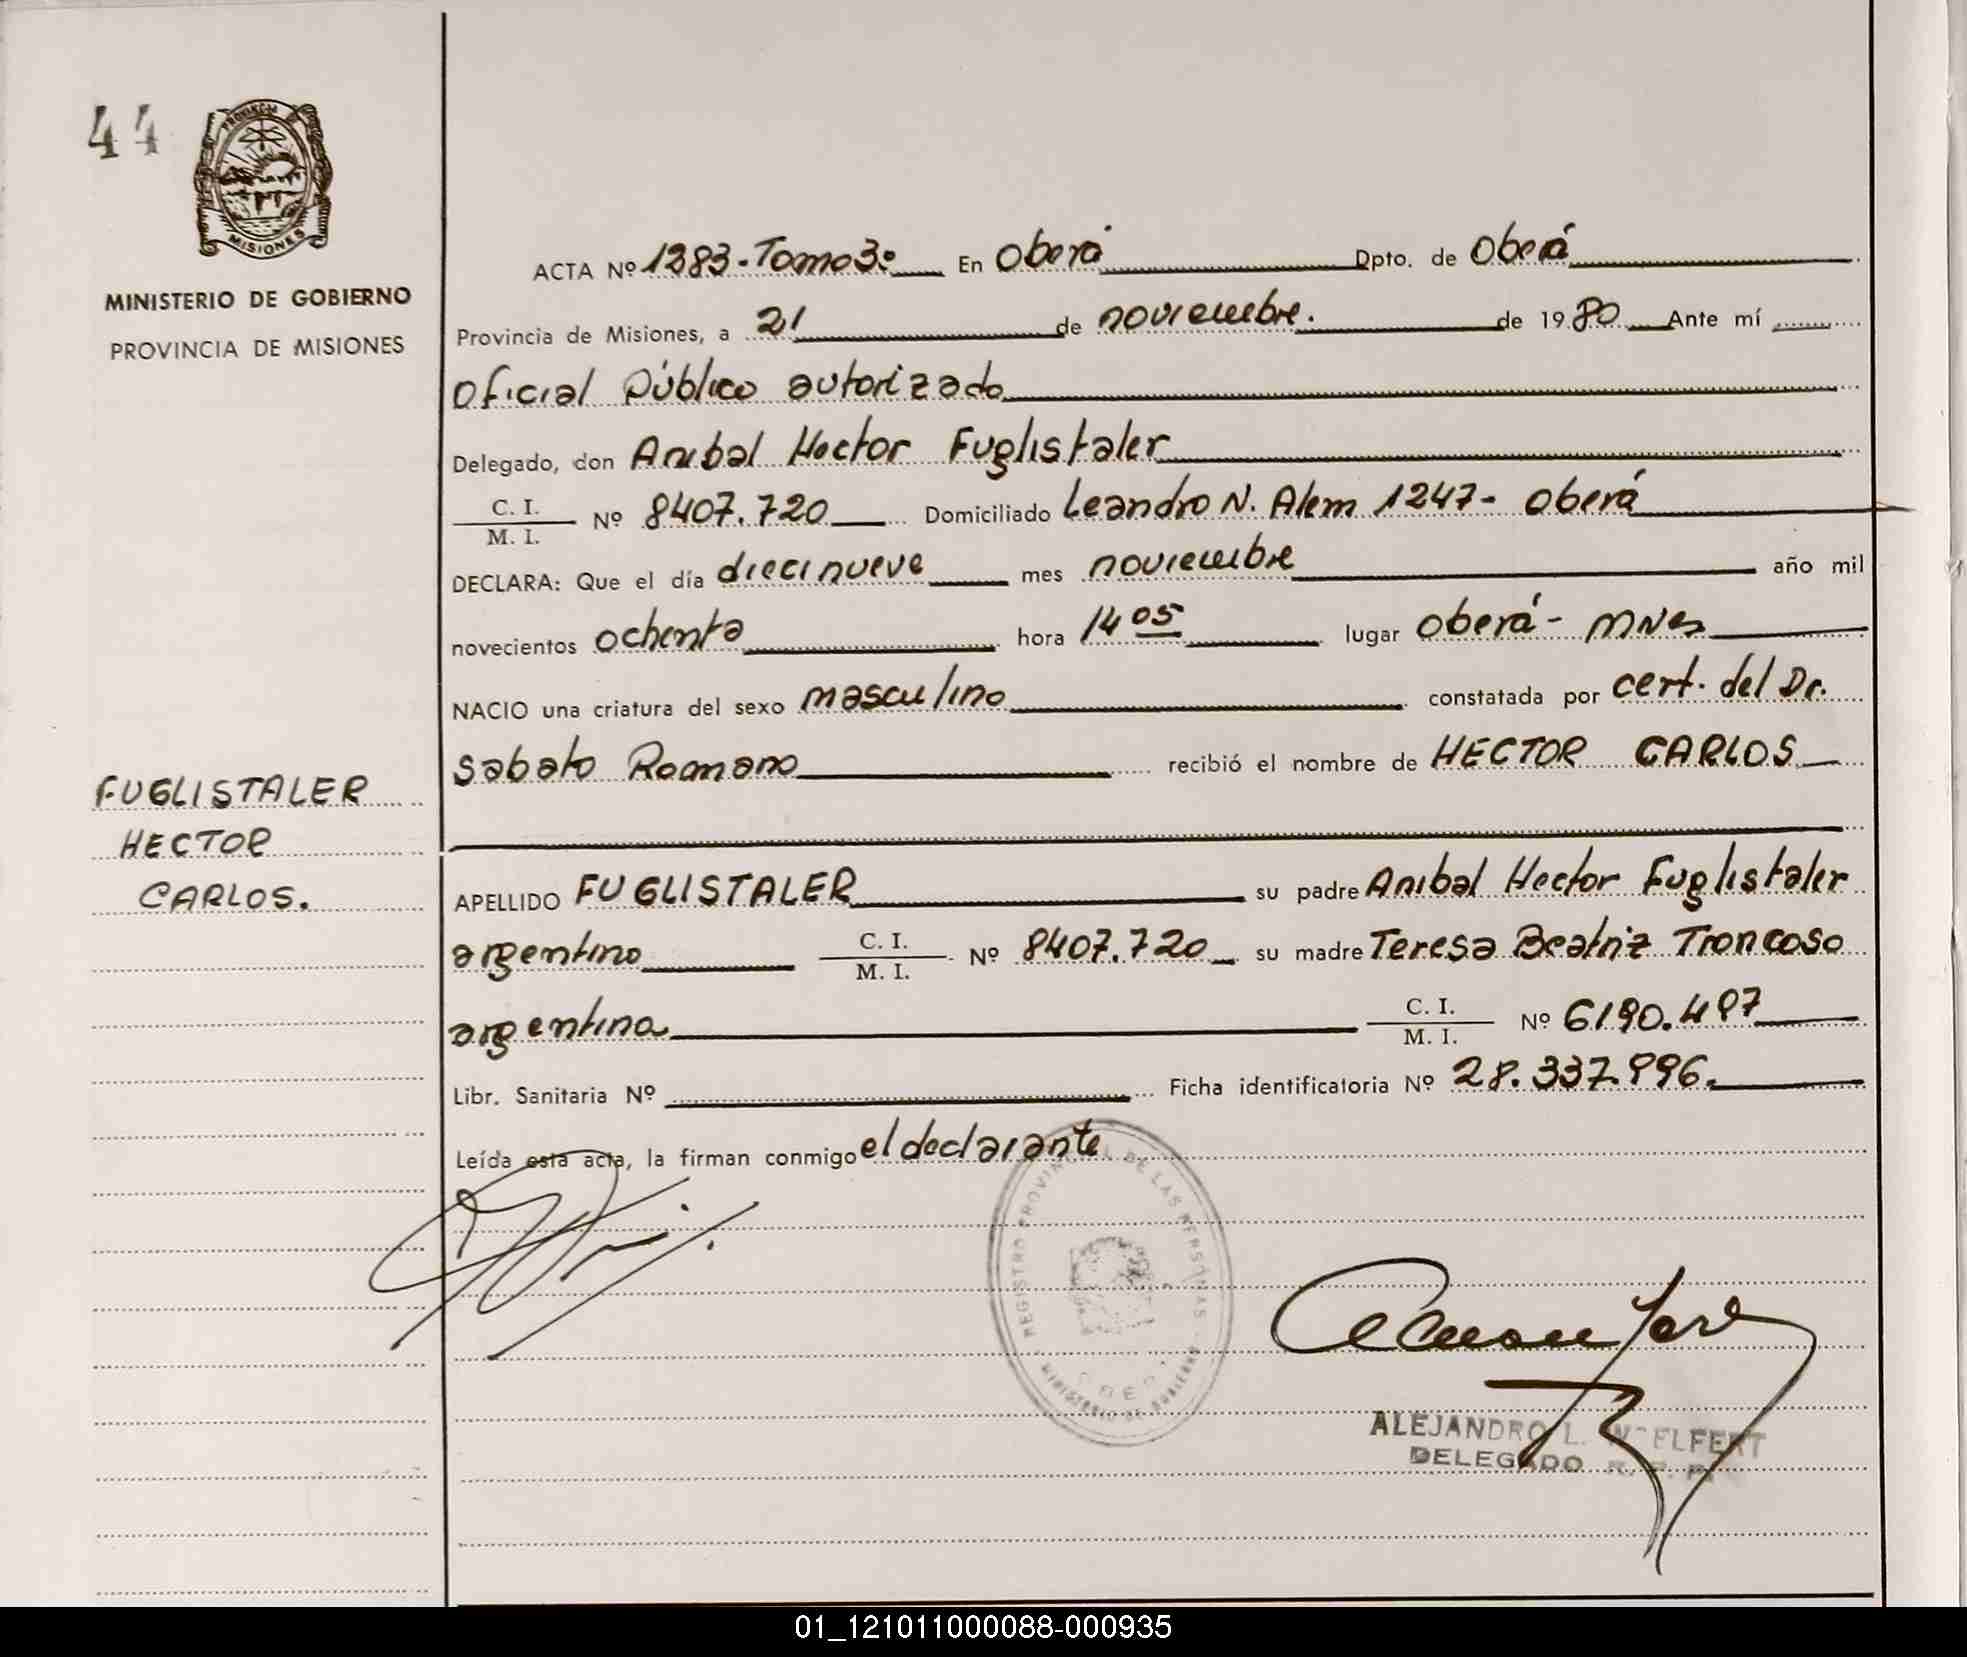 44
PROVINCIA
MISIONES
MINISTERIO DE GOBIERNO
PROVINCIA DE MISIONES
FUGLISTALER
HECTOR
CARLOS.
ACTA Nº 1383-Tomo3º En Oberá Dpto. de Oberá
Provincia de Misiones, a 21 de noviembre. de 1980 Ante mí
Oficial Público autorizado
Delegado, don Anibal Hector Fuglistaler
C. I.
M. I. Nº 8407.720 Domiciliado Leandro N. Alem 1247- Oberá
DECLARA: Que el día diecinueve mes noviembre año mil
novecientos ochenta hora 14 05 lugar Oberá- Mnes
NACIO una criatura del sexo masculino constatada por cert. del Dr.
Sabato Romano recibió el nombre de HECTOR CARLOS
APELLIDO FUGLISTALER su padre Anibal Hector Fuglistaler
argentino C. I.
M. I. Nº 8407.720 su madre Teresa Beatriz Troncoso
argentina C. I.
M. I. Nº 6190.497
Libr. Sanitaria Nº Ficha identificatoria Nº 28.337.996.
Leída esta acta, la firman conmigo el declarante
REGISTRO PROVINCIAL DE LAS PERSONAS
MINISTERIO DE GOBIERNO
ALEJANDRO L. WOELFERT
DELEGADO R. P. P.
01_121011000088-000935